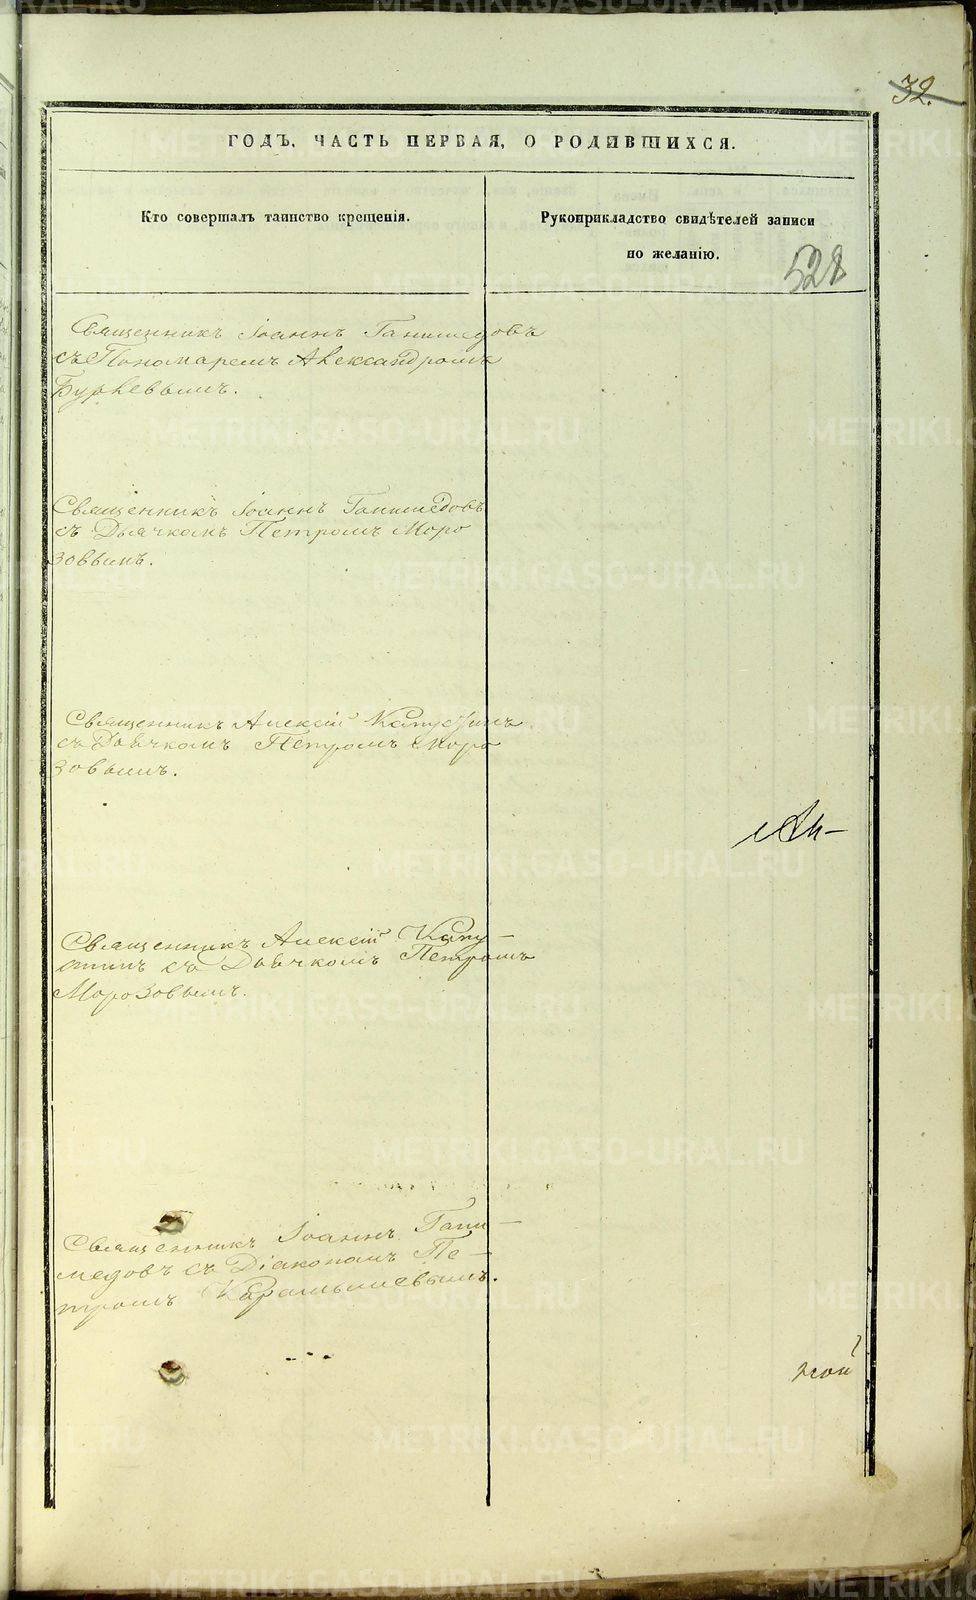 32.
ГОДЪ, ЧАСТЬ ПЕРВАЯ, О РОДИВШИХСЯ.
Кто совершалъ таинство крещенія.
Рукоприкладство свидѣтелей записи
по желанію.
528
Священникъ Іоаннъ Ганимедовъ
съ Пономаремъ Александромъ
Священникъ Іоаннъ Ганимедовъ
съ Дьячкомъ Петромъ Моро
зовымъ.
Священникъ Алексій Капустинъ
съ Дьячкомъ Петромъ Моро
зовымъ.
Священникъ Алексій Капу-
стинъ съ Дьячкомъ Петромъ
Морозовымъ.
Священникъ Іоаннъ Гани-
медовъ съ Діакономъ Пе-
тромъ Карамышевымъ.
METRIKI.GASO-URAL.RU